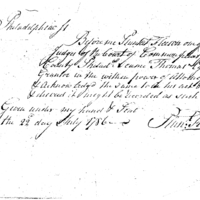 Philadelphia ss
Before me Plunket Fleeson one of
Judges of the Court of Common pleas
County Philad. came Thomas
Grantor in the within power of Attorney
& acknowledged the same to be his act &
& desired it might be recorded as such
Given under my hand & Seal
the 22 day July 1786
Plun. F